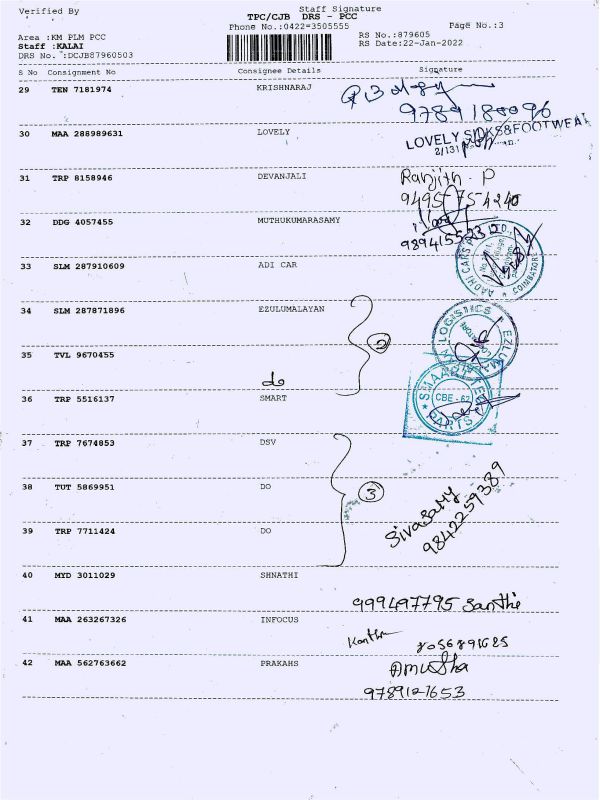 Verified By Staff Signature
TPC/CJB DRS - PCC
Phone No.:0422=3505555 Page No.:3
Area :KM PLM PCC RS No.:879605
Staff :KALAI RS Date:22-Jan-2022
DRS No. :DCJB87960503
S No Consignment No Consignee Details Signature
29 TEN 7181974 KRISHNARAJ
9789180096
30 MAA 288989631 LOVELY LOVELY &FOOTWEAR
2/131
31 TRP 8158946 DEVANJALI Ranjith . P
9495754240
32 DDG 4057455 MUTHUKUMARASAMY
9894155232
33 SLM 287910609 ADI CAR AADHI CARS COIMBATORE
34 SLM 287871896 EZULUMALAYAN LOGISTICS
2
35 TVL 9670455
do
36 TRP 5516137 SMART SMART PARTS CBE - 62
37 TRP 7674853 DSV
38 TUT 5869951 DO 3
Sivasamy
9842259389
39 TRP 7711424 DO
40 MYD 3011029 SHNATHI
999497795 Santhi
41 MAA 263267326 INFOCUS
8056891625
42 MAA 562763662 PRAKAHS
9789121653